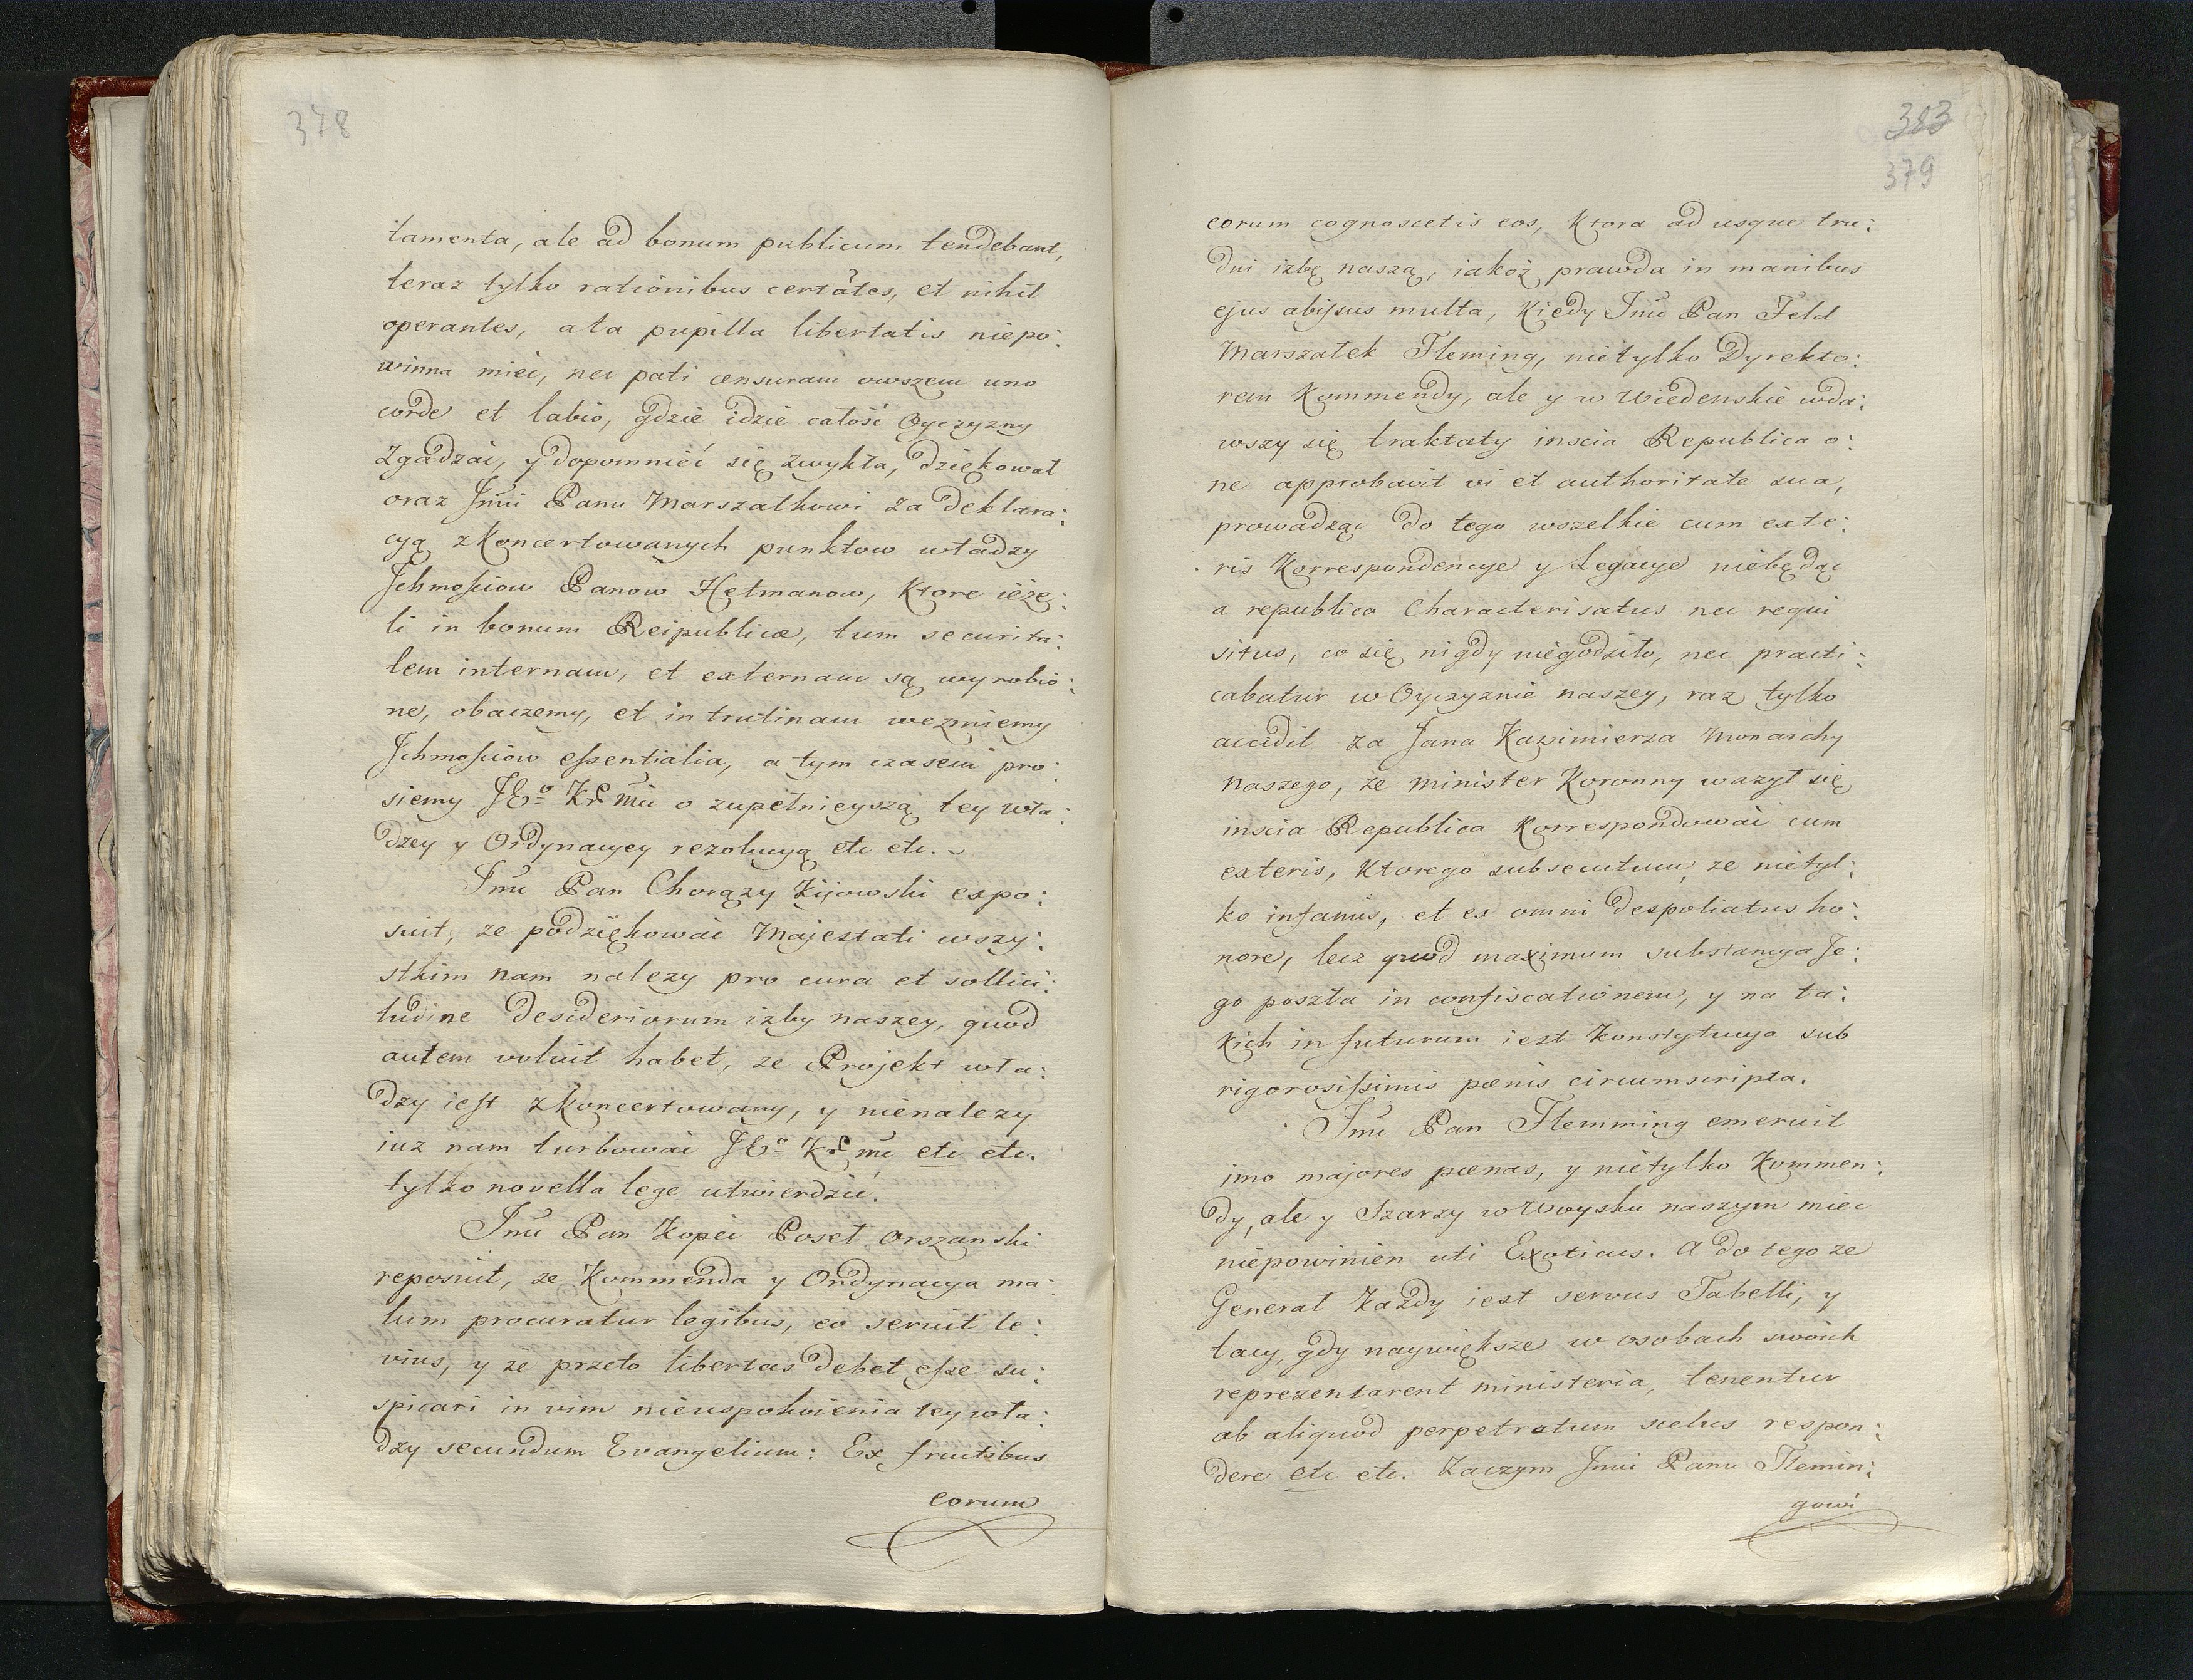 378
tamenta, ale ad bonum publicum tendebant,
teraz tylko rationibus certātes, et nihil
operantes, ata pupilla libertatis niepo:
winna mieć, nec pati censuram owszem uno
corde et labio, gdzie idzie całość Oyczyzny
Zgadzać, y dopomnieć się zwykła, dziękował
oraz Jmci Panu Marszałkowi za deklara:
cyą zkoncertowanych punktow władzy
Jchmościow Panow Hetmanow, Ktore ieże:
li in bonum Reipublicæ, tum securita:
tem internam, et externam są wyrobio:
ne, obaczemy, et in trutinam wezmiemy
Jchmościow essentialia, a tym czasem pro:
siemy JEo Kr Mci o zupełnieyszą tey wła:
dzey y Ordynacyey rezolucyą etc etc.
Jmc Pan Chorązy Kijowski expo:
suit, ze podziękować Majestati wszy:
stkim nam nalezy pro cura et sollici:
tudine desideriorum izby naszey, quod
autem voluit habet, ze Projekt wła:
dzy iest zkoncertowany, y nienalezy
iuz nam turbować JEo Kr mc etc etc.
tylko novella lege utwierdzić.
Jmc Pan Kopeć Poseł Orszanski
reposuit, ze Kommenda y Ordynacya ma:
lum procuratur legibus, co seruit le:
vius, y że przeto libertas debet esse su:
spicari in vim nieuspokoienia tey wła:
dzy secundum Evangelium: Ex fructibus
eorum
383
379
eorum cognoscetis eos, Ktora ad usque tru:
dni izbę naszą, iakoż prawda in manibus
ejus abyssus multa, Kiedy Jmc Pan Feld
Marszałek Fleming, nietylko Dyrekto:
rem Kommendy, ale y w Wiedenskie wda:
wszy się traktaty inscia Republica o:
ne approbavit vi et authoritate sua,
prowadząc do tego wszelkie cum exte:
ris Korrespondencye y Legacye niebędąc
a republica Characterisatus nec requi
situs, co się nigdy niegodziło, nec practi:
cabatur w Oyczyznie naszey, raz tylko
accidit za Jana Kazimierza Monarchy
naszego, że minister Koronny ważył się
inscia Republica Korrespondować cum
exteris, Ktorego subsecutum, ze nietyl:
ko infamis, et ex omni despoliatus ho:
nore, lecz quod maximum substancya Je:
go poszła in confiscationem, y na ta:
kich in futurum iest Konstytucya sub
rigorosissimis pœnis circumscripta.
Jmc Pan Flemming emeruit
imo majores pœnas, y nietylko Kommen:
dy, ale y Szarzy w Woysku naszym miec
niepowinien uti Exoticus. A do tego ze
Generał Każdy iest servus Tabelli, y
tacy, gdy naywiększe w osobach swoich
reprezentarent ministeria, tenentur
ab aliquod perpetratum scelus respon:
dere etc etc. Zaczym Jmci Panu Flemin:
gowi